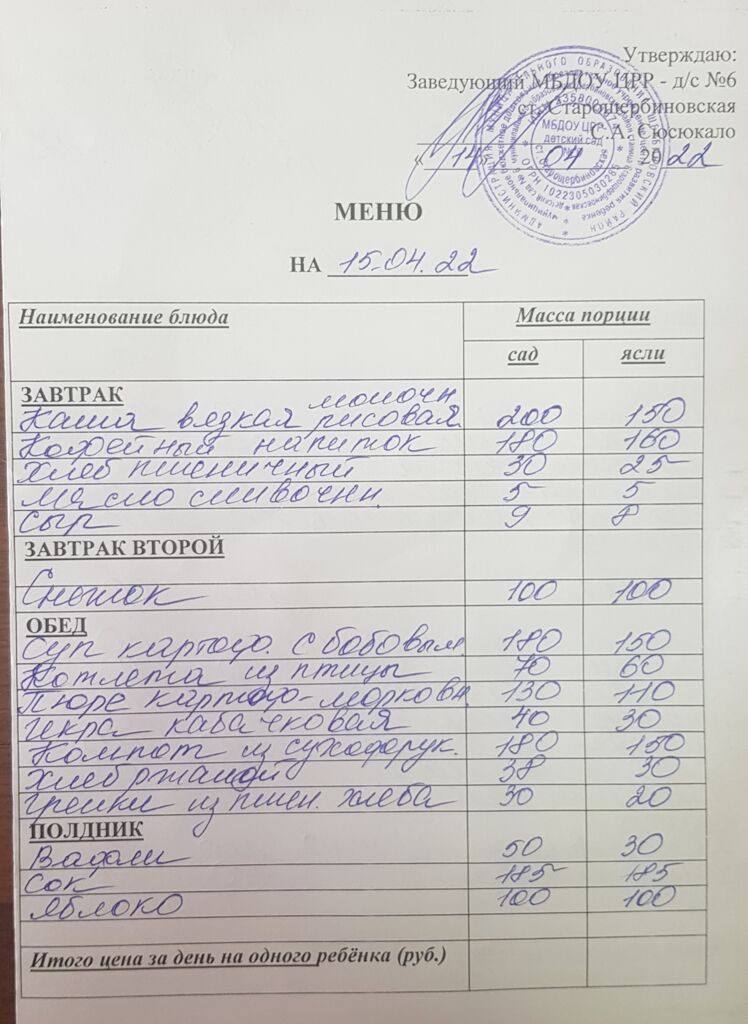 Утверждаю:
Заведующий МБДОУ ЦРР - д/с №6
ст. Старощербиновская
С.А. Сюсюкало
« 14 » 04 2022
МБДОУ ЦРР-
детский сад
№6
ст Старощербиновская
МЕНЮ
НА 15.04.22
Наименование блюда Масса порции
сад ясли
ЗАВТРАК
Каша вязкая молочн рисовая. 200 150
Кофейный напиток 180 160
Хлеб пшеничный 30 25
Масло сливочн. 5 5
Сыр 9 8
ЗАВТРАК ВТОРОЙ
Снежок 100 100
ОБЕД
Суп картоф. с бобовым. 180 150
Котлета из птицы 70 60
Пюре картоф-морковн. 130 110
Икра кабачковая 40 30
Компот из сухофрук. 180 150
Хлеб ржаной 38 30
Гренки из пшен. хлеба 30 20
ПОЛДНИК
Вафли 50 30
Сок 185 185
Яблоко 100 100
Итого цена за день на одного ребёнка (руб.)